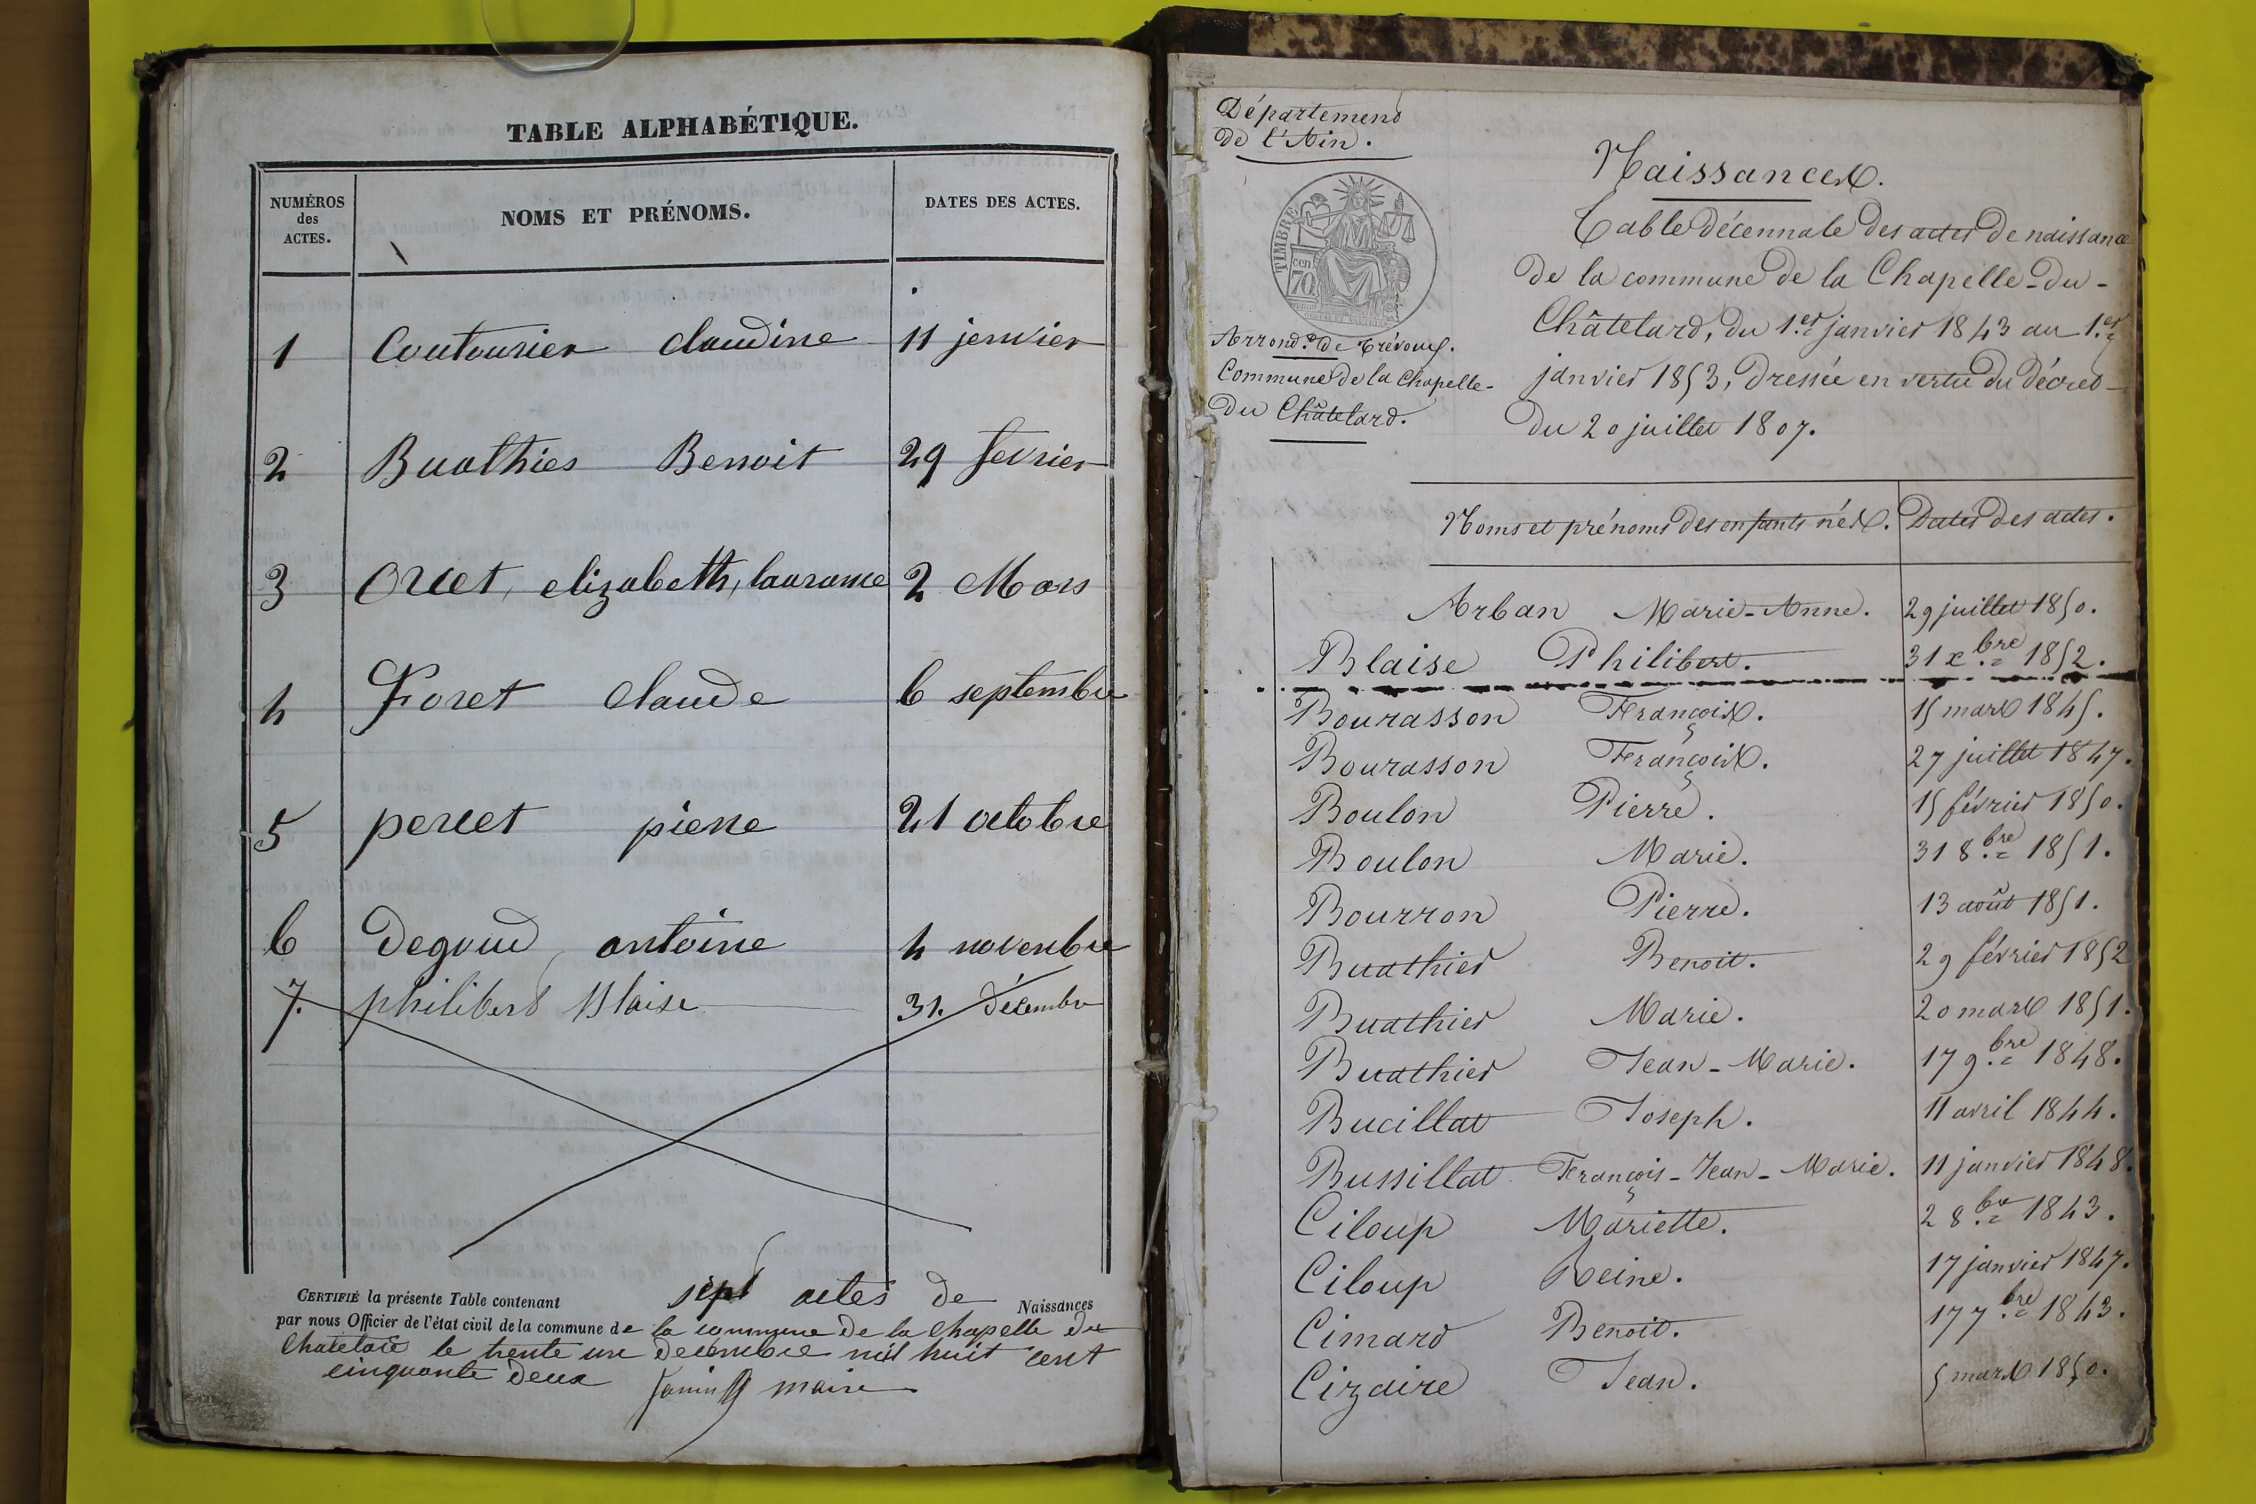 TABLE ALPHABÉTIQUE.
NUMÉROS des ACTES.
NOMS ET PRÉNOMS.
DATES DES ACTES.
1 Couturier claudine 11 jenvier
2 Buathier Benoit 29 fevrier
3 Oruet, elizabeth, laurance 2 Mars
4 Foret claude 6 septembre
5 perret pierre 21 octobre
6 Degoud antoine 4 novenbre
7. philibert Blaise 31. décembre
CERTIFIÉ la présente Table contenant sept actes de Naissances
par nous Officier de l'état civil de la commune de la commune de la chapelle du
chatelard le trente un decembre mil huit cent
cinquante deux
Janin maire
Département
de l'Ain.
TIMBRE
70 cen.
Arrond.t de Trévoux.
Commune de la Chapelle-
du Châtelard.
Naissances.
Table décennale des actes de naissance
de la commune de la Chapelle-du-
Châtelard, du 1.er janvier 1843 au 1.er
janvier 1853, dressée en vertu du décret
du 20 juillet 1807.
Noms et prénoms des enfants nés. Dates des actes.
Arban Marie-Anne. 29 juillet 1850.
Blaise Philibert. 31 xbre 1852.
Bourasson François. 15 mars 1845.
Bourasson François. 27 juillet 1847.
Boulon Pierre. 15 février 1850.
Boulon Marie. 31 8.bre 1851.
Bourron Pierre. 13 août 1851.
Buathier Benoit. 29 février 1852
Buathier Marie. 20 mars 1851.
Buathier Jean-Marie. 17 9.bre 1848.
Bucillat Joseph. 11 avril 1844.
Bussillat François-Jean-Marie. 11 janvier 1848.
Ciloup Mariette. 2 8.bre 1843.
Ciloup Reine. 17 janvier 1847.
Cimard Benoit. 17 7.bre 1843.
Cizaire Jean. 5 mars 1850.